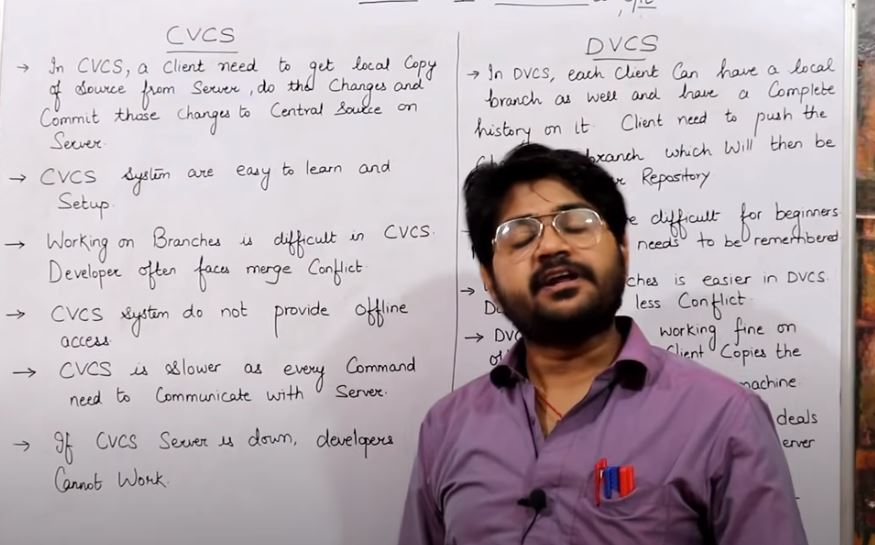 CVCS
→ In CVCS, a Client need to get local Copy
of Source from Server, do the Changes and
Commit those changes to Central Source on
Server.
→ CVCS System are easy to learn and
Setup.
→ Working on Branches is difficult in CVCS.
Developer often faces merge Conflict.
→ CVCS System do not provide offline
access.
→ CVCS is Slower as every Command
need to Communicate with Server.
→ If CVCS Server is down, developers
Cannot Work.
DVCS
→ In DVCS, each Client Can have a local
branch as well and have a Complete
history on it. Client need to push the
branch which Will then be
Repository
difficult for beginners.
needs to be remembered
is easier in DVCS.
less Conflict.
→ working fine on
Copies the
machine
deals